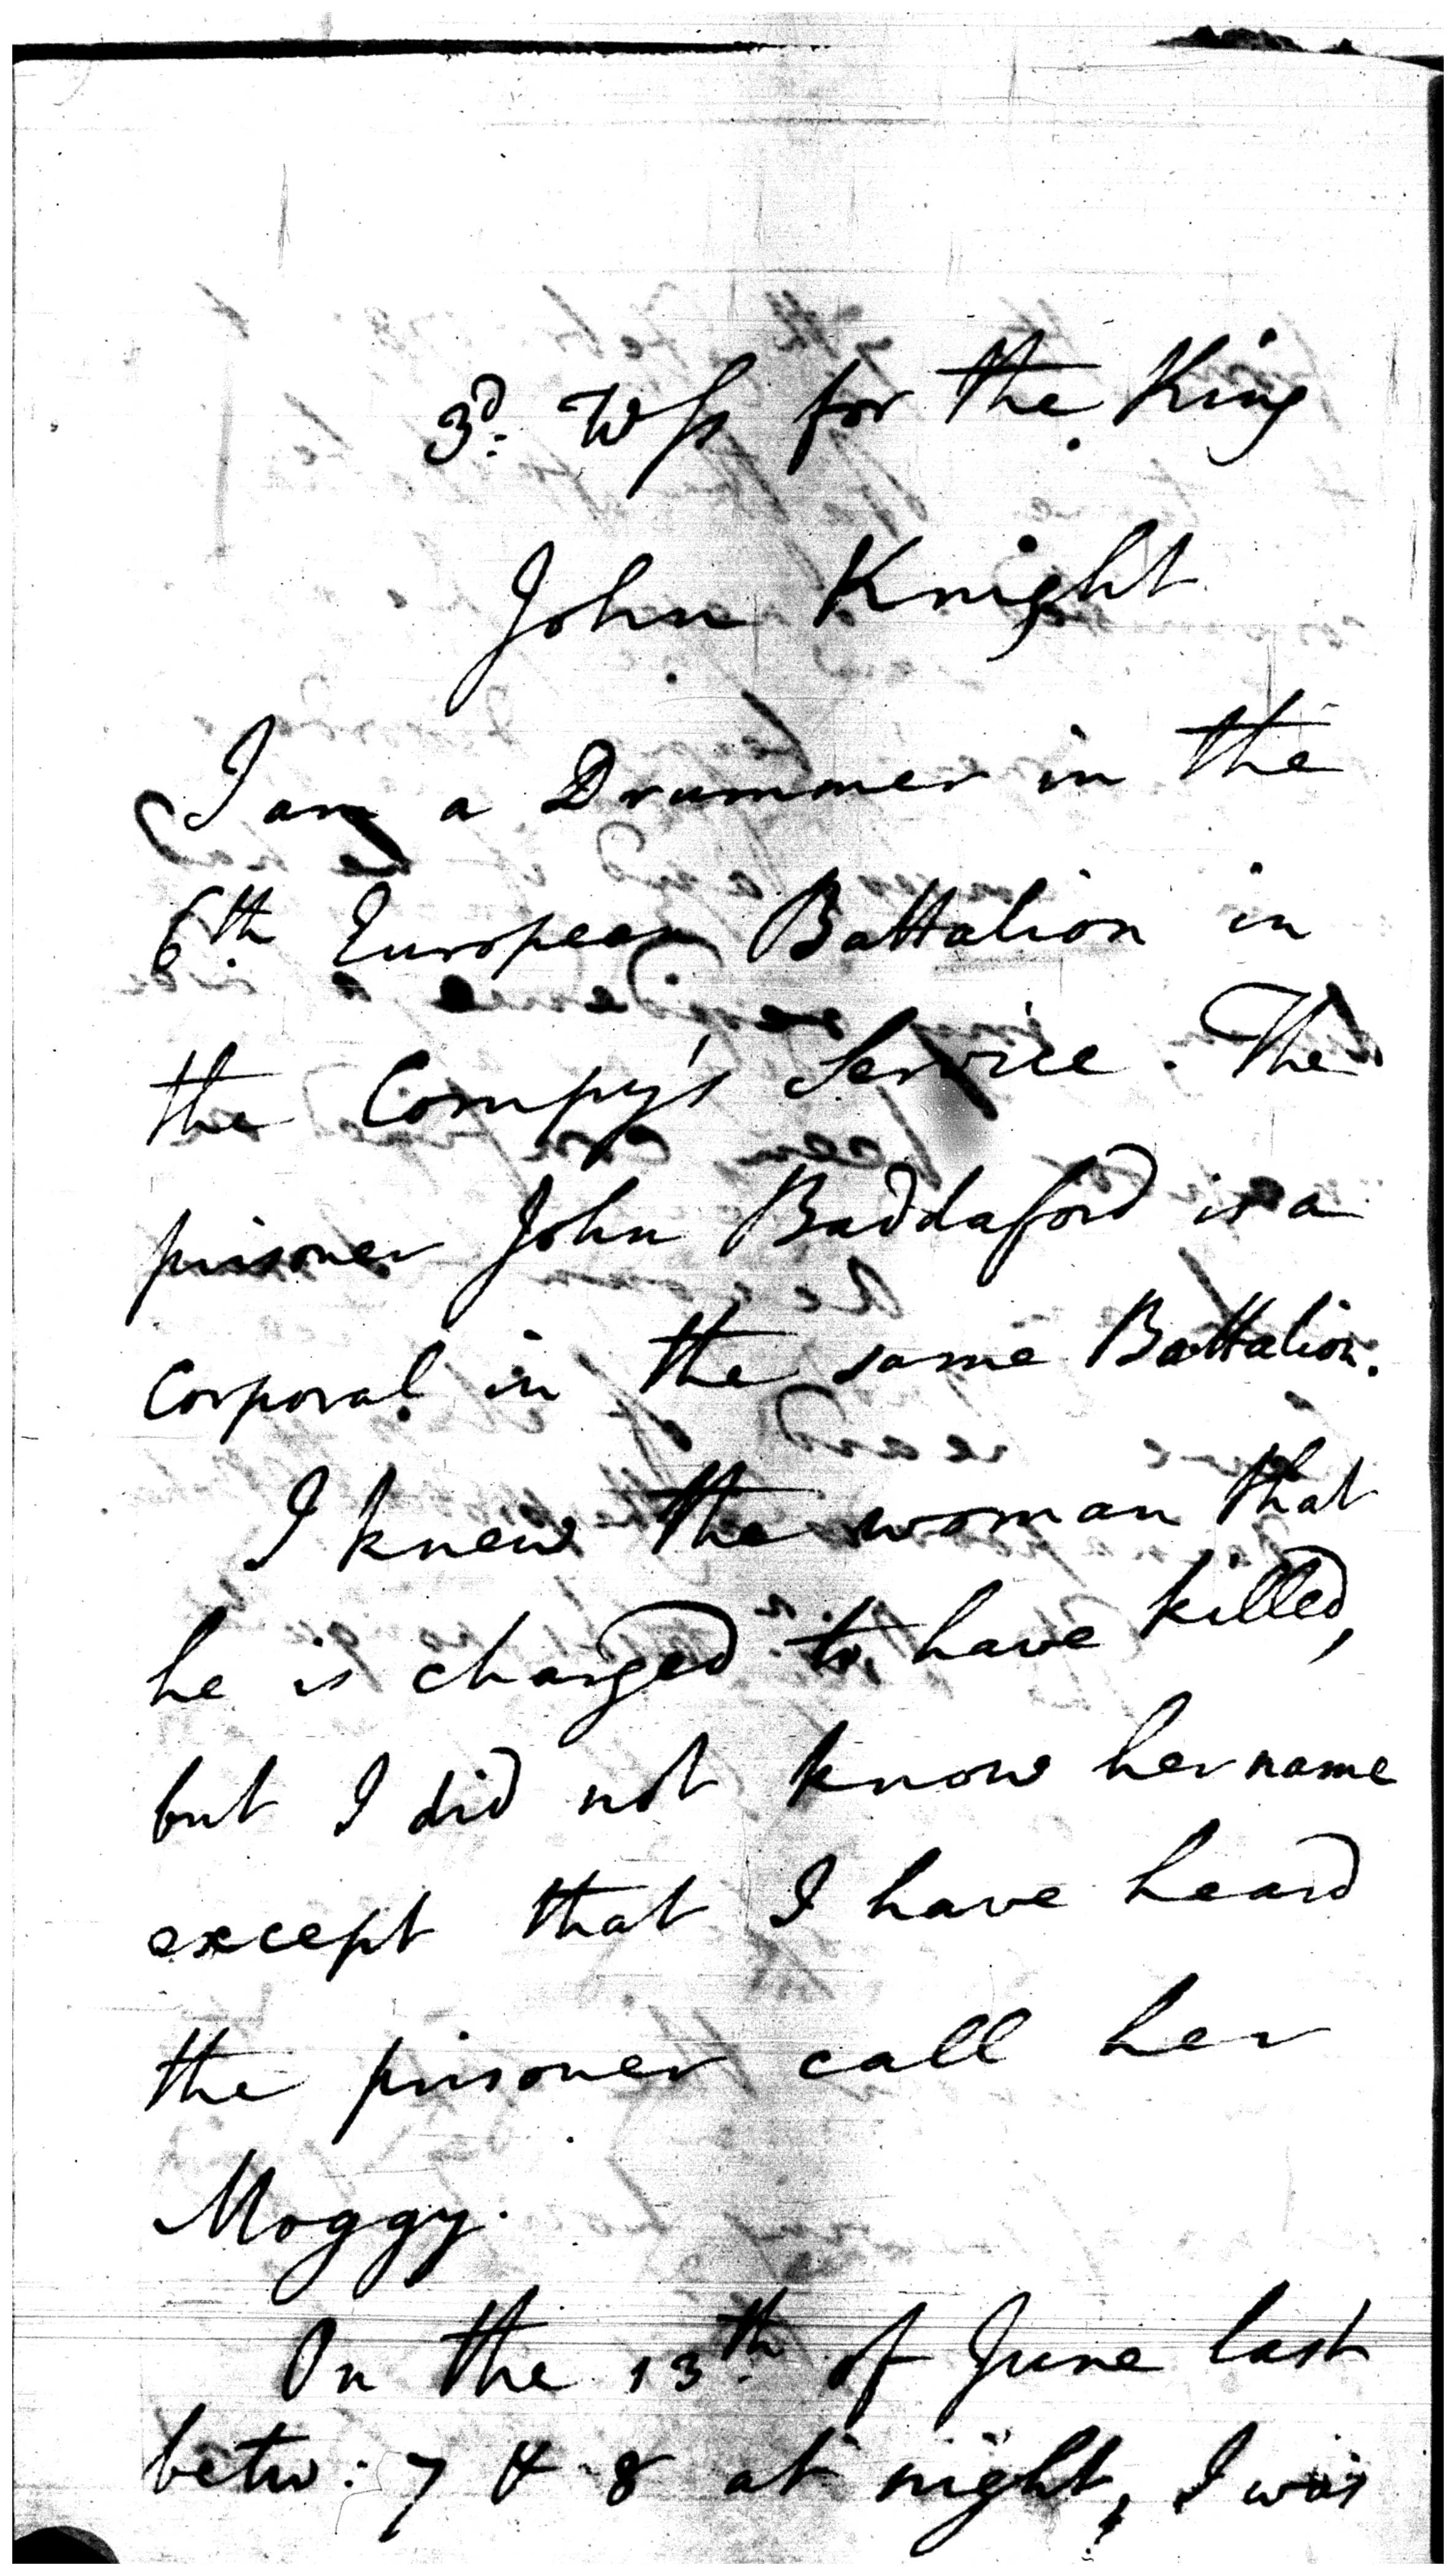 3d. Wss for the King
John Knight
I am a Drummer in the
6th European Battalion in
the Compy's Service. The
prisoner John Baddaford is a
Corporal in the same Battalion.
I knew the woman that
he is charged to have killed,
but I did not know her name
except that I have heard
the prisoner call her
Moggy.
On the 13th of June last
betw: 7 & 8 at night, I was